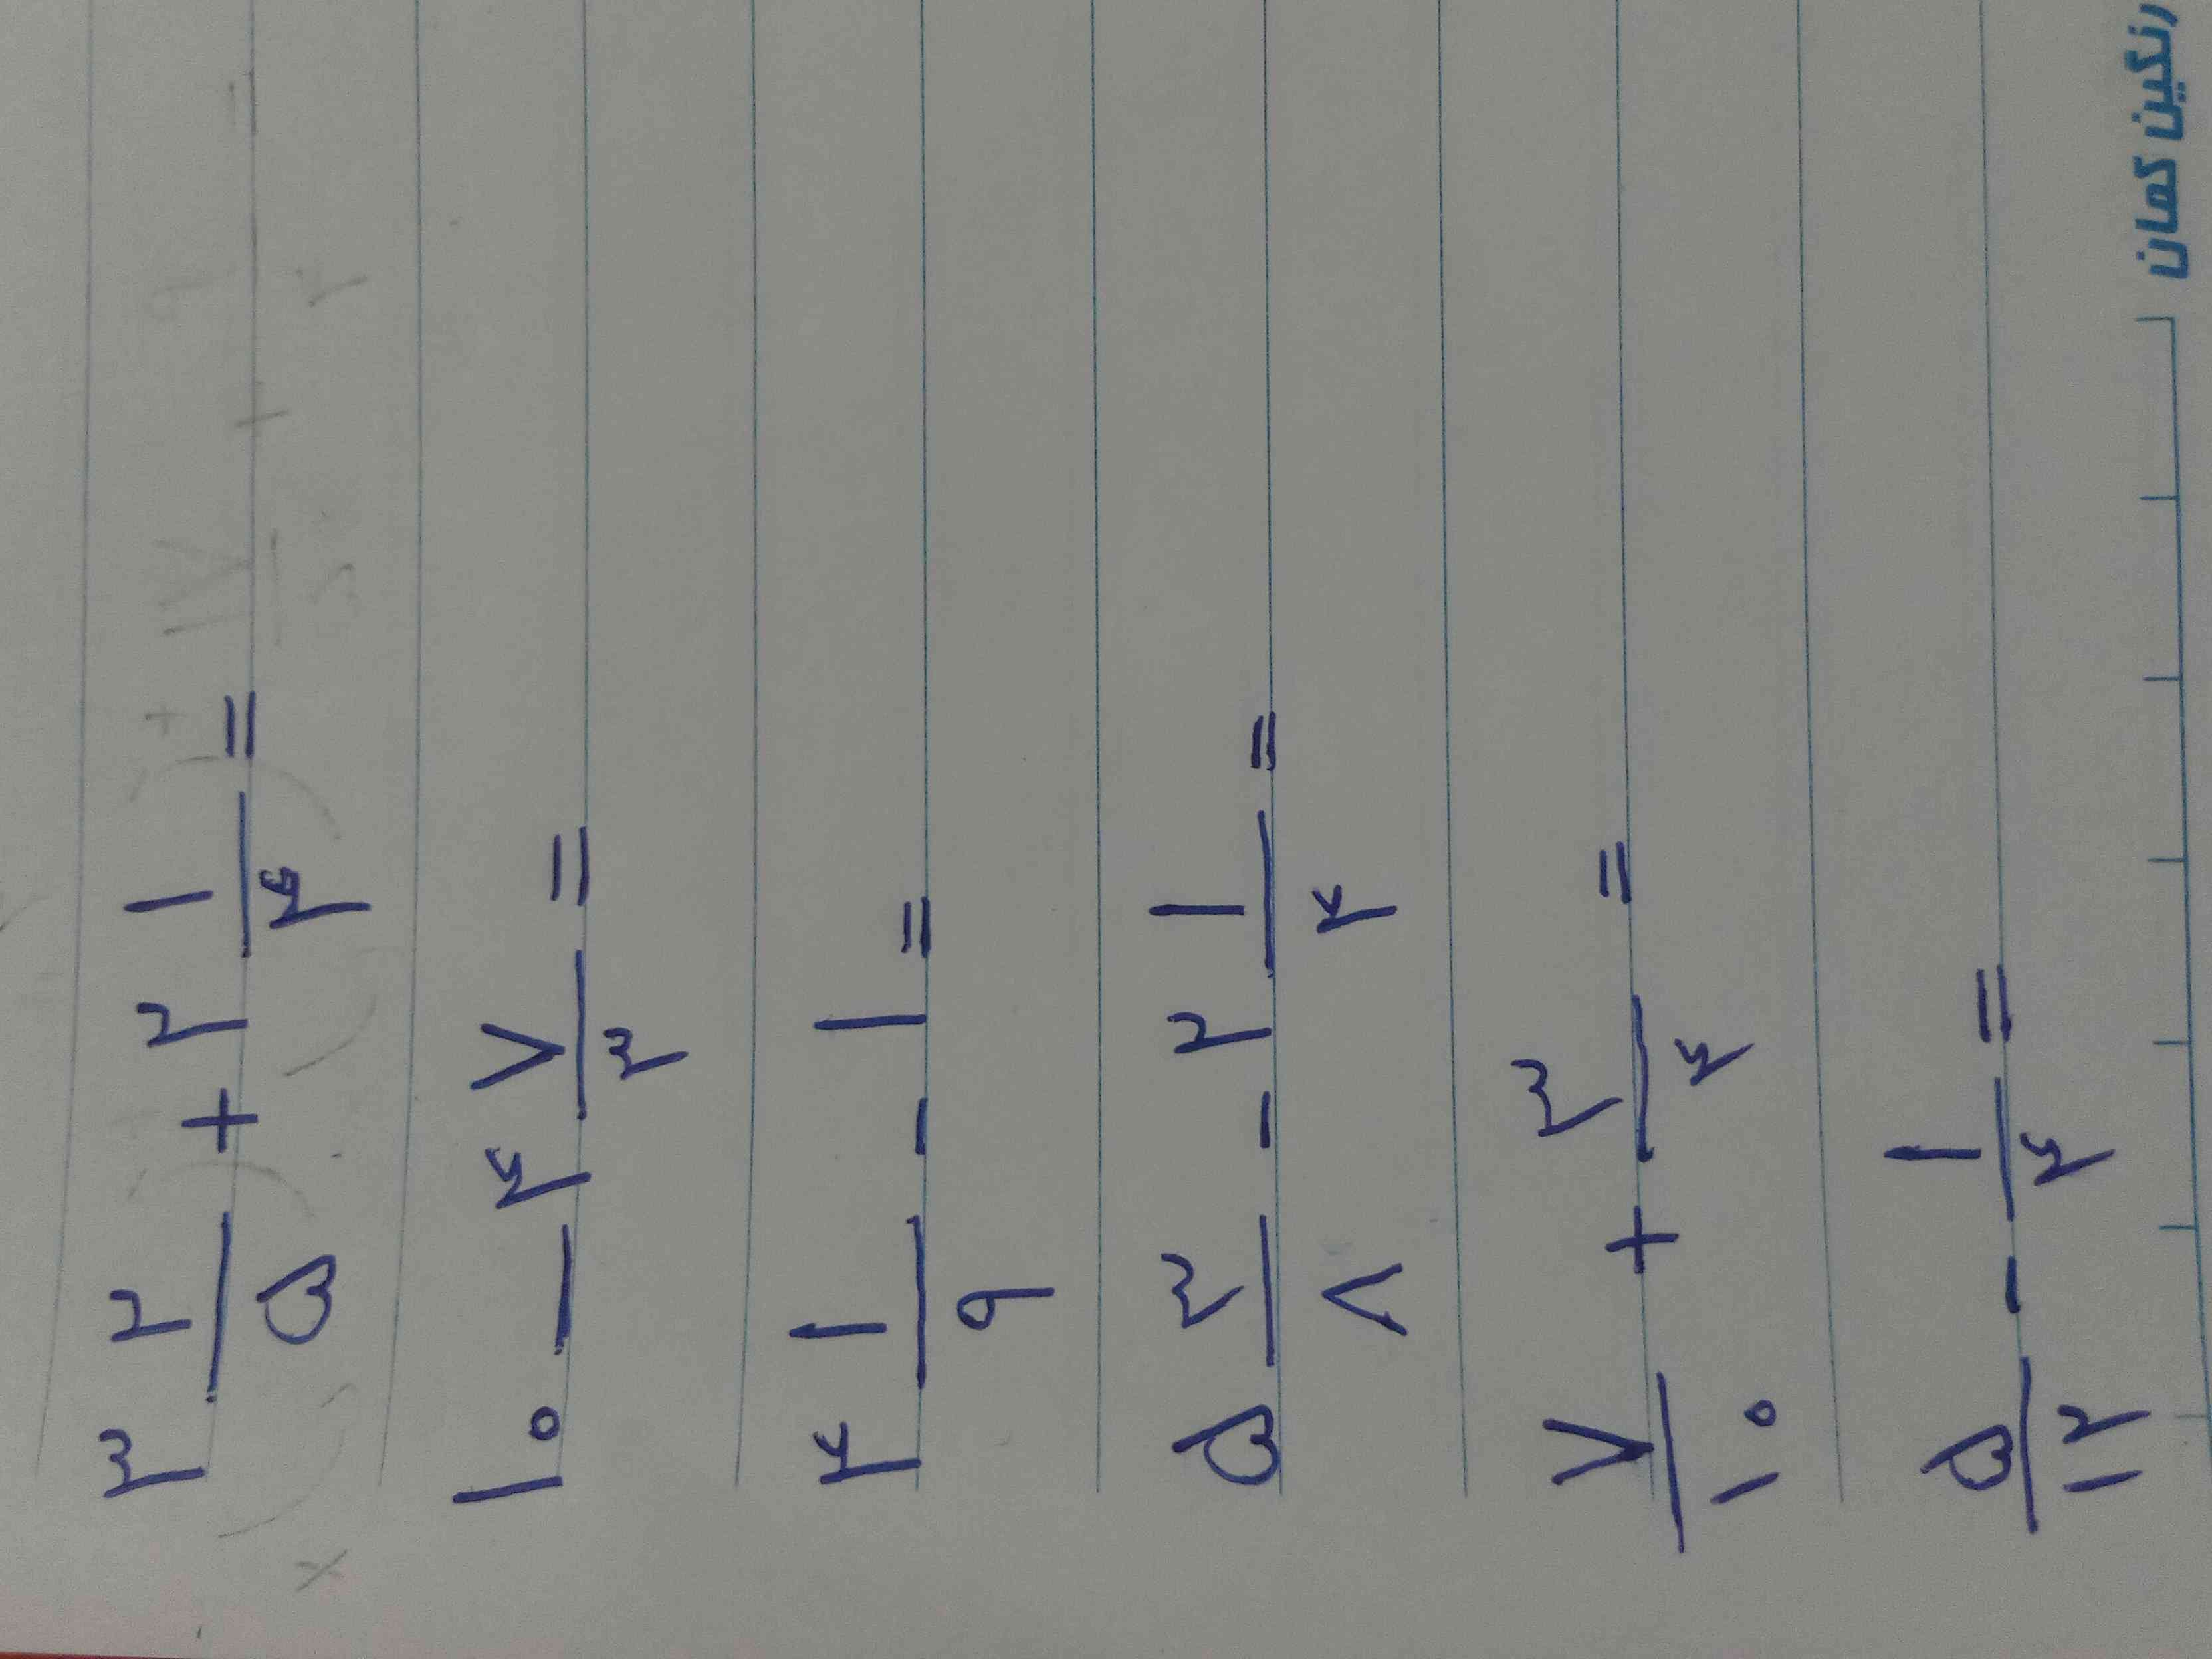 ۳ ۲/۵ + ۲ ۱/۴ =
۱۰ - ۴ ۷/۳ =
۴ ۱/۹ - ۱ =
۵ ۳/۸ - ۲ ۱/۴ =
۷/۱۰ + ۳/۴ =
۵/۱۲ - ۱/۴ =
رنگین کمان